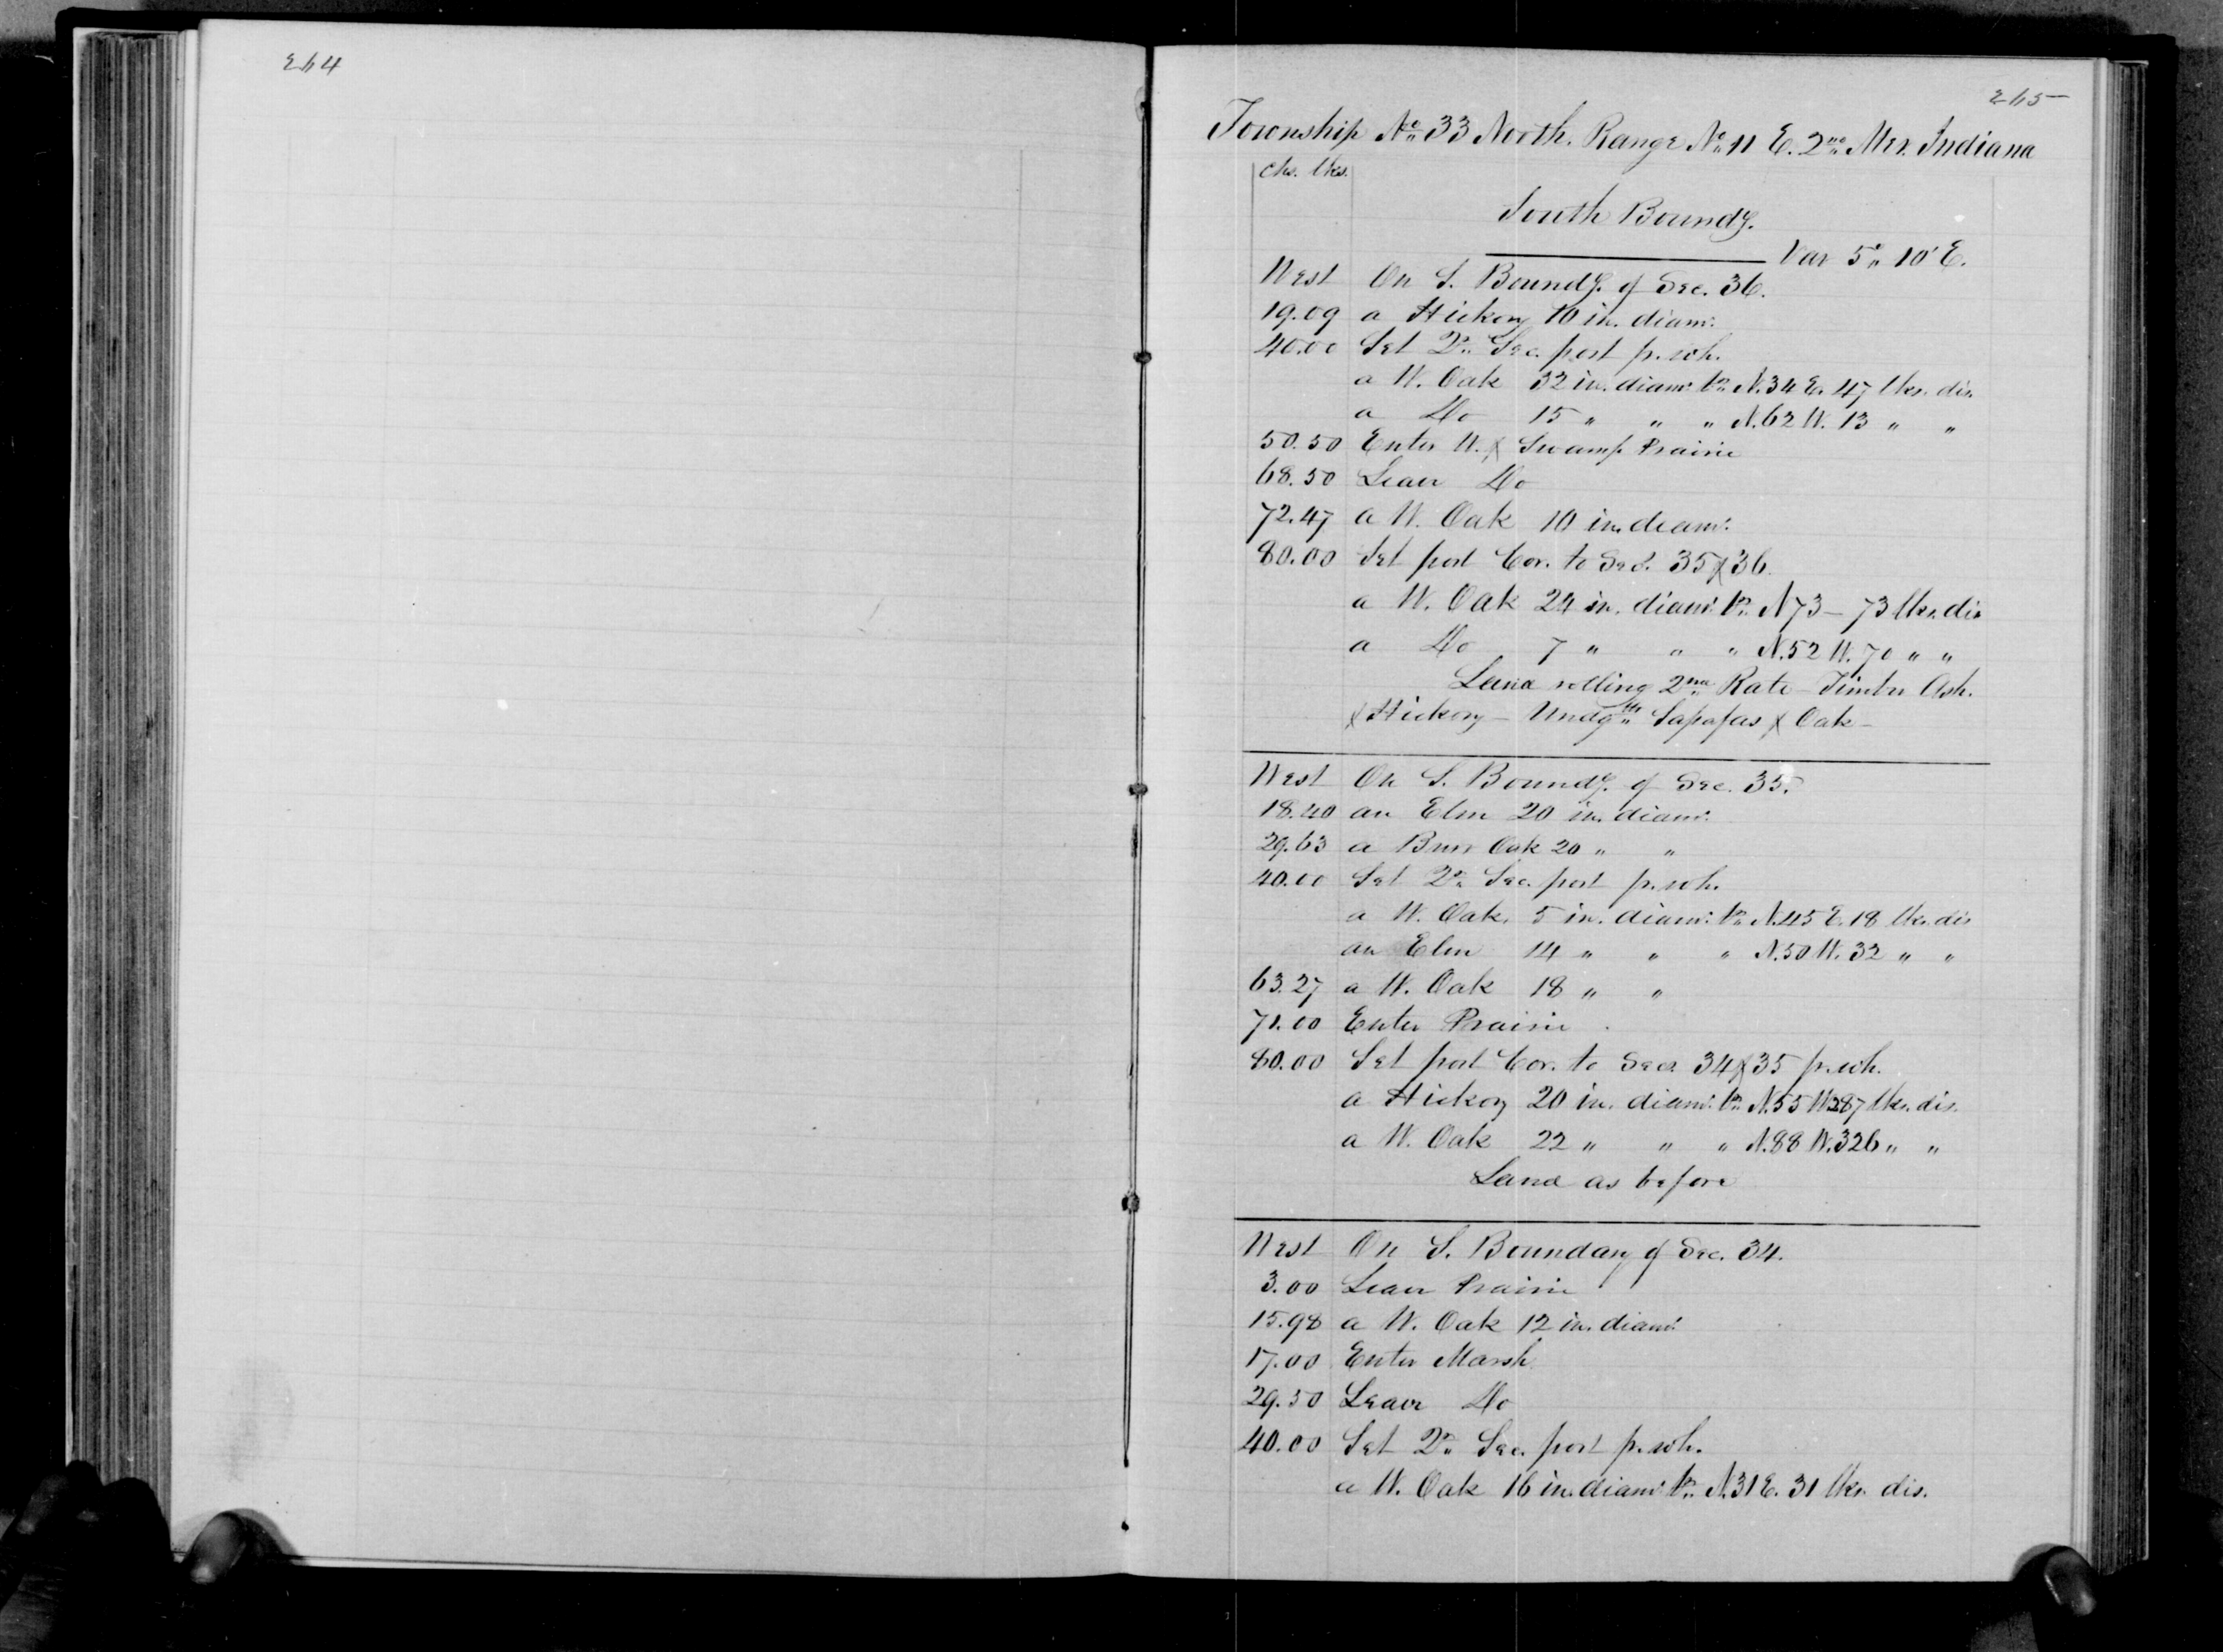 264
265
Township No 33 North. Range No 11 E. 2nd Mer. Indiana
chs. lks.
South Boundy.
Var 5° 10' E.
West On S. Boundy. of Sec. 36.
19.09 a Hickory 10 in. diamr.
40.00 Set Qr Sec. post p. wh.
a W. Oak 32 in. diamr. br N.34 E. 47 lks. dis.
a Do 15 " " " N.62 W. 13 " "
50.50 Enter W. & Swamp Prairie
68.50 Leave Do
72.47 a W. Oak 10 in. diamr.
80.00 Set post Cor. to Secs. 35 & 36.
a W. Oak 24 in. diamr. br N 73 — 73 lks. dis
a Do 7 " " " N.52 W. 70 " "
Land rolling 2nd Rate – Timber Ash.
& Hickory – Undgth Sassafras & Oak –
West On S. Boundy. of Sec. 35.
18.40 an Elm 20 in. diamr.
29.63 a Burr Oak 20 " "
40.00 Set Qr Sec. post p. wh.
a W. Oak. 5 in. diamr. br N.45 E. 18 lks. dis
an Elm 14 " " " N.50 W. 32 " "
63.27 a W. Oak 18 " "
71.00 Enter Prairie
80.00 Set post Cor. to Secs. 34 & 35 p. wh.
a Hickory 20 in. diamr. br N.55 W 287 lks. dis.
a W. Oak 22 " " " N.88 W. 326 " "
Land as before
West On S. Boundary of Sec. 34.
3.00 Leave Prairie
15.98 a W. Oak 12 in. diamr.
17.00 Enter Marsh
29.50 Leave Do
40.00 Set Qr Sec. post p. wh.
a W. Oak 16 in. diamr. br N.31 E. 31 lks. dis.